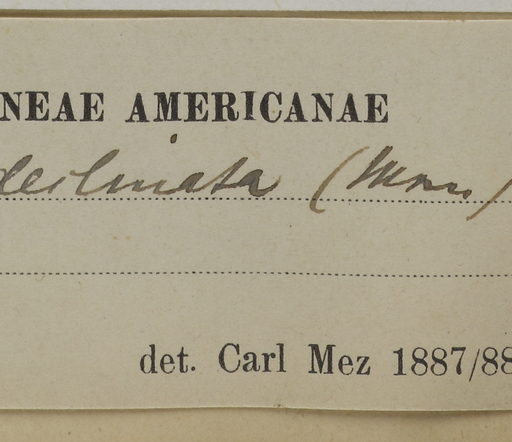 NEAE AMERICANAE
declinata (
det. Carl Mez 1887/88